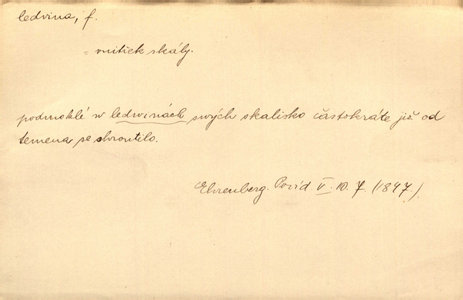 ledvina, f.
= vnitřek skály.
podmoklé w ledwinách swých skalisko částokráte již od
temena se shroutilo.
Ehrenberg. Povíd V. 10. 7. (1847).